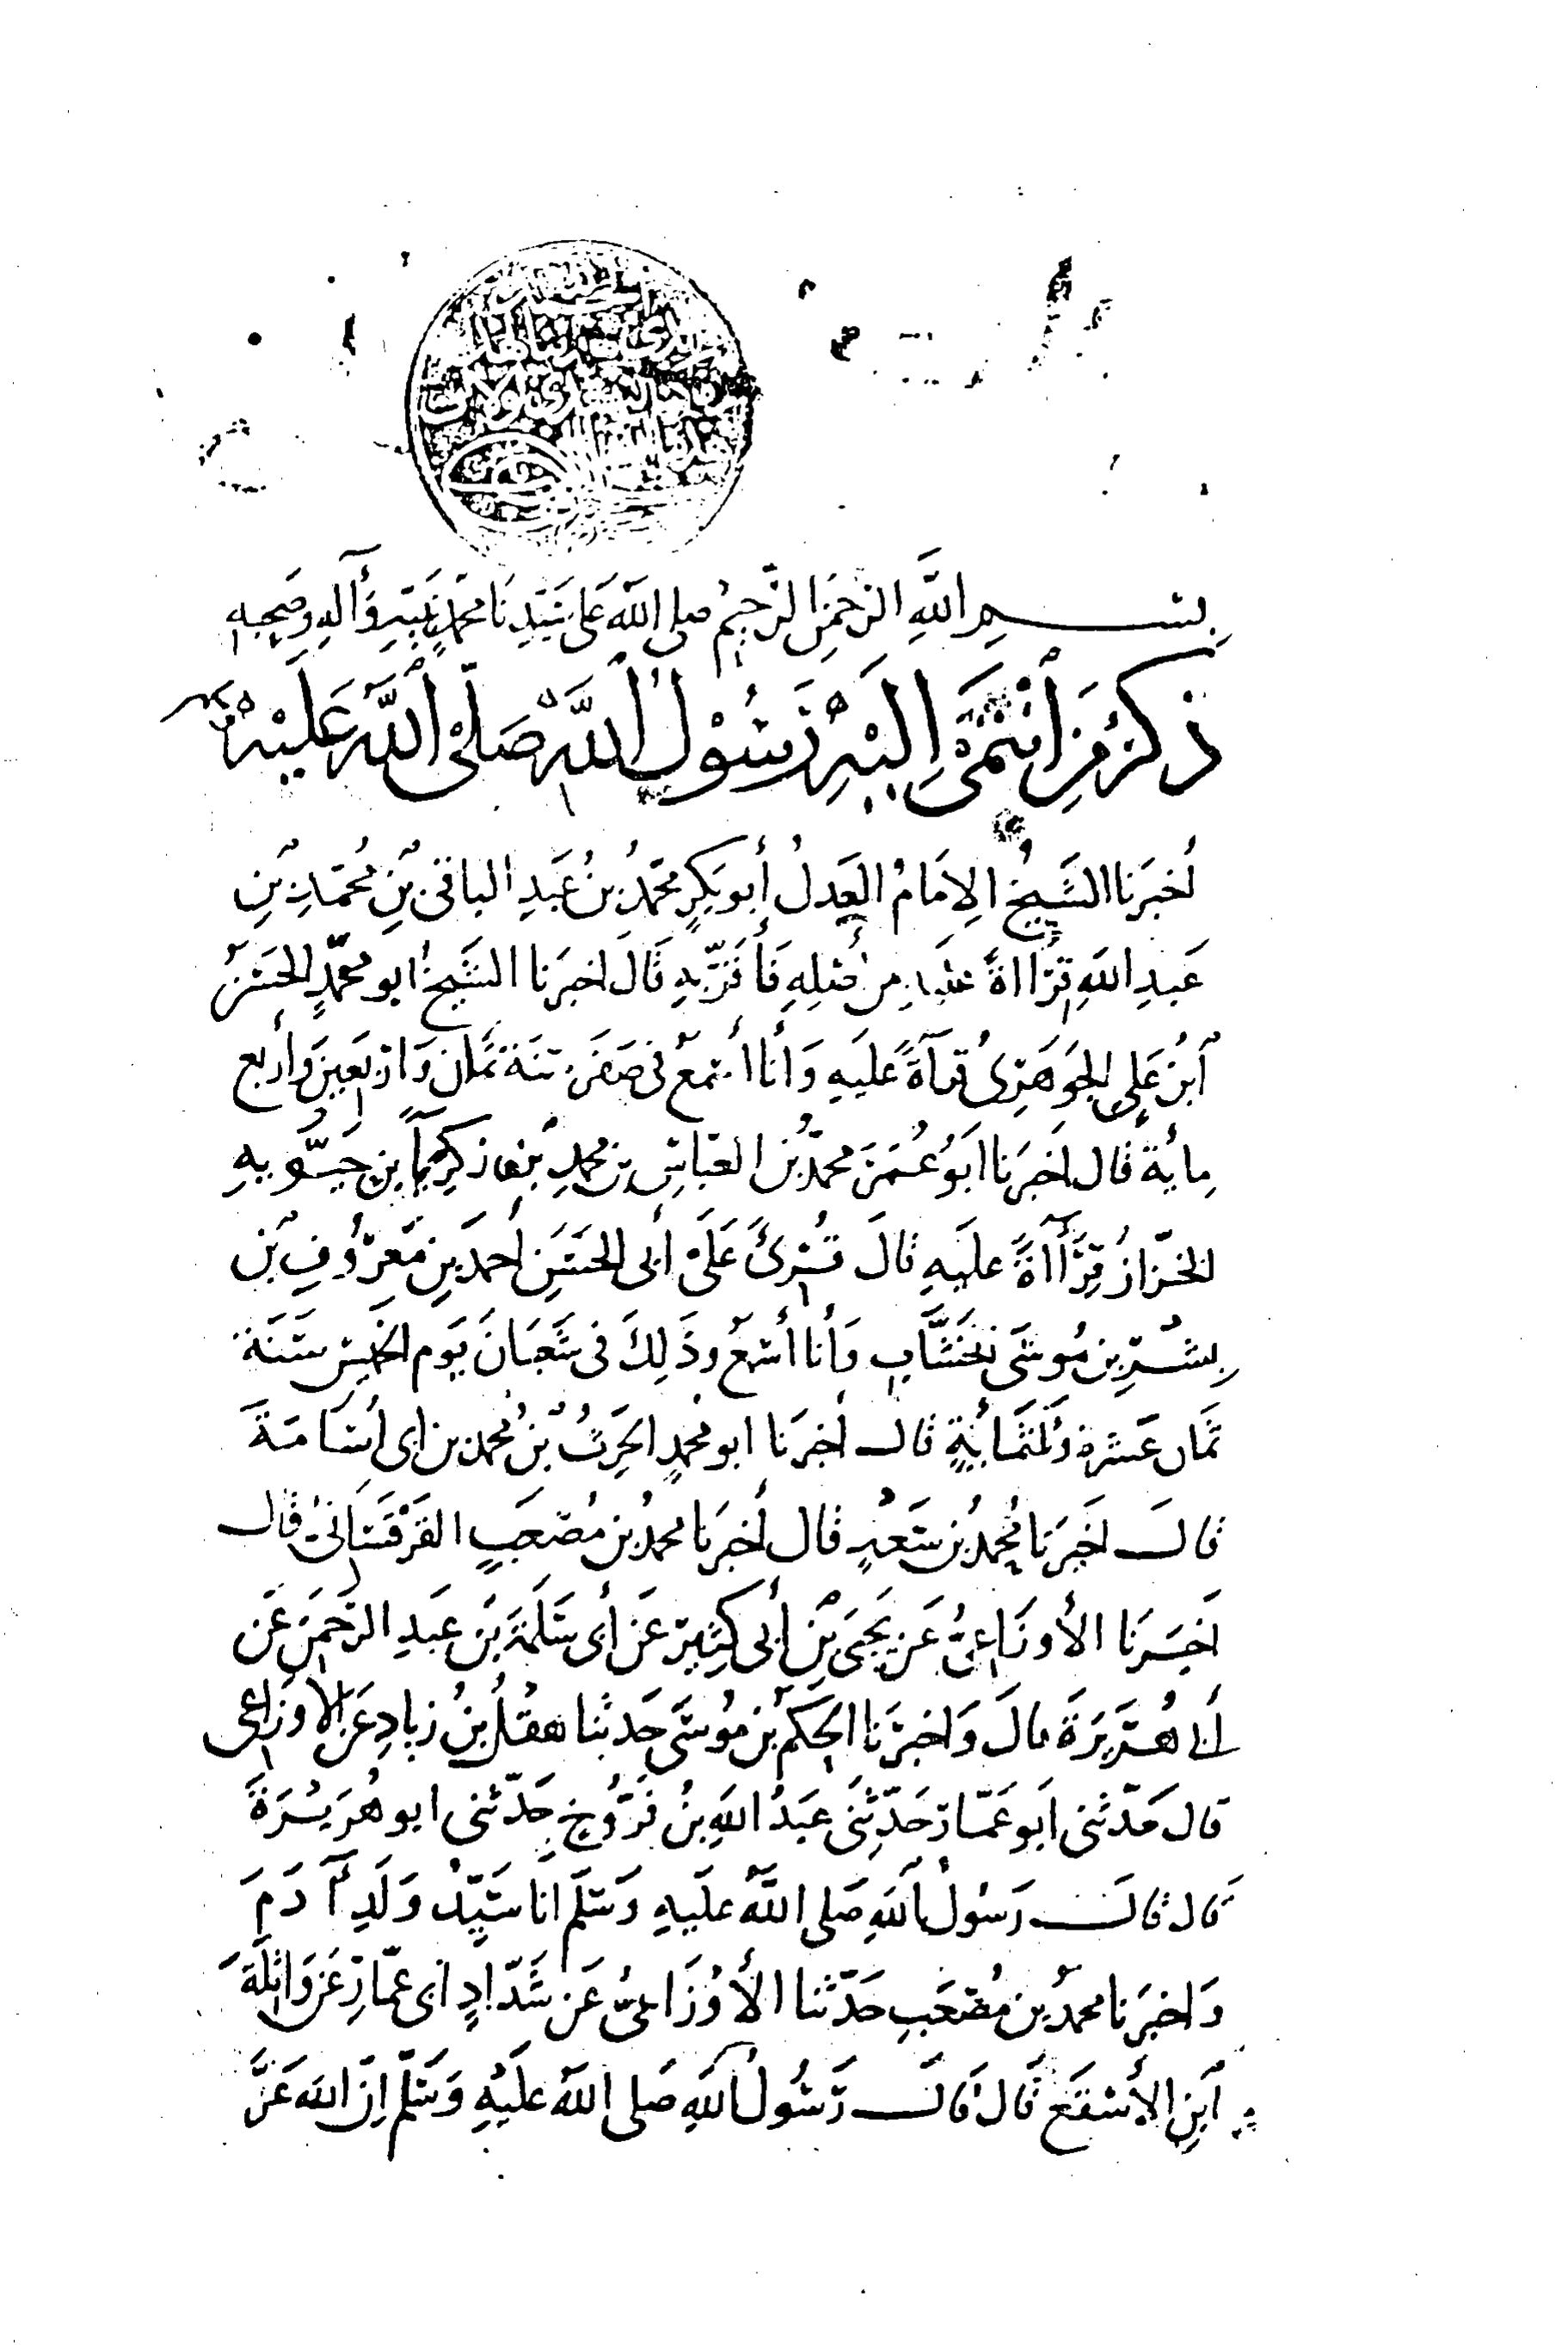 بسم الله الرحمن الرحيم صلى الله على سيدنا محمد نبيه وآله وصحبه
ذكر من انتمى إليه رسول الله صلى الله عليه
أخبرنا الشيخ الإمام العدل أبو بكر محمد بن عبد الباقي بن محمد بن
عبد الله قراءةً عليه من فأقر به قال اخبرنا الشيخ ابو محمد الحسن
ابن علي الجوهري قرآةً عليه وأنا أسمع في صفر سنة ثمان واربعين وأربع
مائة قال اخبرنا ابو عمر محمد بن العباس بن محمد بن زكريا بن حيويه
الخزاز قراءةً عليه قال قرئ على أبي الحسن أحمد بن معروف بن
بشر بن موسى الخشاب وأنا أسمع وذلك في شعبان يوم الخميس سنة
ثمان عشرة وثلثمائة قال أخبرنا ابو محمد الحرث بن محمد بن ابي أسامة
قال اخبرنا محمد بن سعد قال أخبرنا محمد بن مصعب القرقساني قال
اخبرنا الأوزاعي عن يحيى بن أبي كثير عن أبي سلمة بن عبد الرحمن عن
أبي هريرة قال واخبرنا الحكم بن موسى حدثنا هقل بن زياد عن الاوزاعي
قال حدثني ابو عمار حدثني عبد الله بن فروخ حدثني ابو هريرة
قال قال رسول الله صلى الله عليه وسلم انا سيد ولد آدم
واخبرنا محمد بن مصعب حدثنا الأوزاعي عن شداد ابي عمار عن واثلة
ابن الأسقع قال قال رسول الله صلى الله عليه وسلم إن الله عز